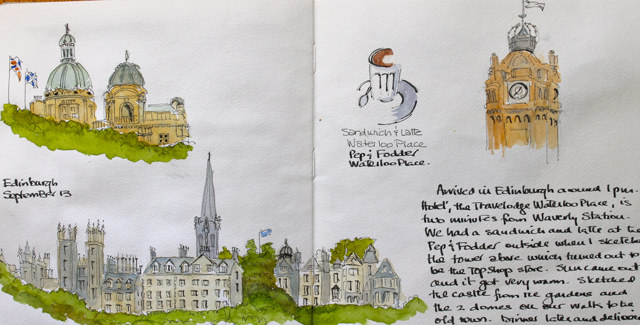 Edinburgh
September 13
Sandwich & Latte
Waterloo Place
Pep & Fodder
Waterloo Place.
Arrived in Edinburgh around 1pm.
Hotel, the Travelodge Waterloo Place, is
two minutes from Waverly Station.
We had a sandwich and latte at the
Pep & Fodder outside when I sketch
the tower above which turned out to
be the Top Shop store. Sun came out
and it got very warm. Sketched
the castle from the gardens and
the 2 domes on our walk to the
old town. Dinner later and